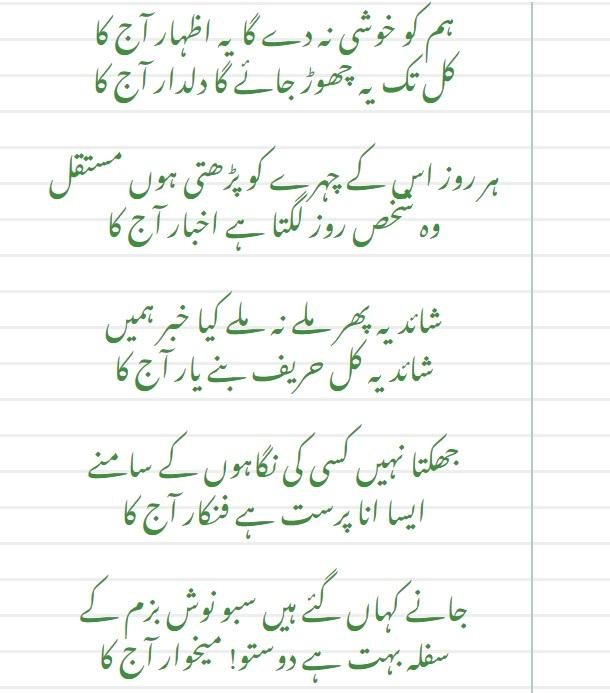 ہم کو خوشی نہ دے گا یہ اظہار آج کا
کل تک یہ چھوڑ جائے گا دلدار آج کا
ہر روز اس کے چہرے کو پڑھتی ہوں مستقل
وہ شخص روز لگتا ہے اخبار آج کا
شائد یہ پھر ملے نہ ملے کیا خبر ہمیں
شائد یہ کل حریف بنے یار آج کا
جھکتا نہیں کسی کی نگاہوں کے سامنے
ایسا انا پرست ہے فنکار آج کا
جانے کہاں گئے ہیں سبو نوش بزم کے
سفلہ بہت ہے دوستو! میخوار آج کا